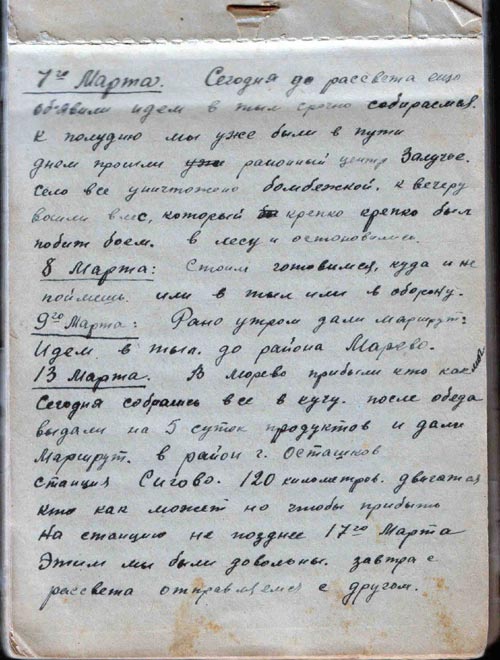 7го Марта. Сегодня до рассвета еще
объявили идем в тыл срочно собираемся.
К полудню мы уже были в пути
днем прошли уже районный центр Залучье.
Село все уничтожено бомбежкой. К вечеру
вошли в лес, который крепко крепко был
побит боем. в лесу и остоновились.
8 Марта: Стоим готовимся, куда и не
поймешь. или в тыл или в оборону.
9го Марта: Рано утром дали маршрут:
Идем в тыл. до района Марево.
13 Марта. В Морево прибыли кто как мог
Сегодня собрались все в кучу. после обеда
выдали на 5 суток продуктов и дали
Маршрут. в район г. Осташков
станция Сигово. 120 километров. двигатся
кто как может но чтобы прибыть
На станцию не позднее 17го Марта
Этим мы были довольны. завтра с
рассвета отправляемся с другом.